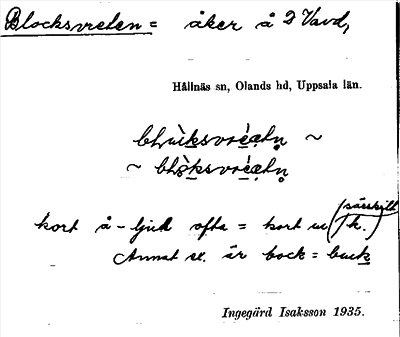 Blocksvreten = åker å 2 Vavd,
Hållnäs sn, Olands hd, Uppsala län.
~
~
kort å-ljud ofta = kort u (särskilt k.)
Annat ex. är bock = buck
Ingegärd Isaksson 1935.